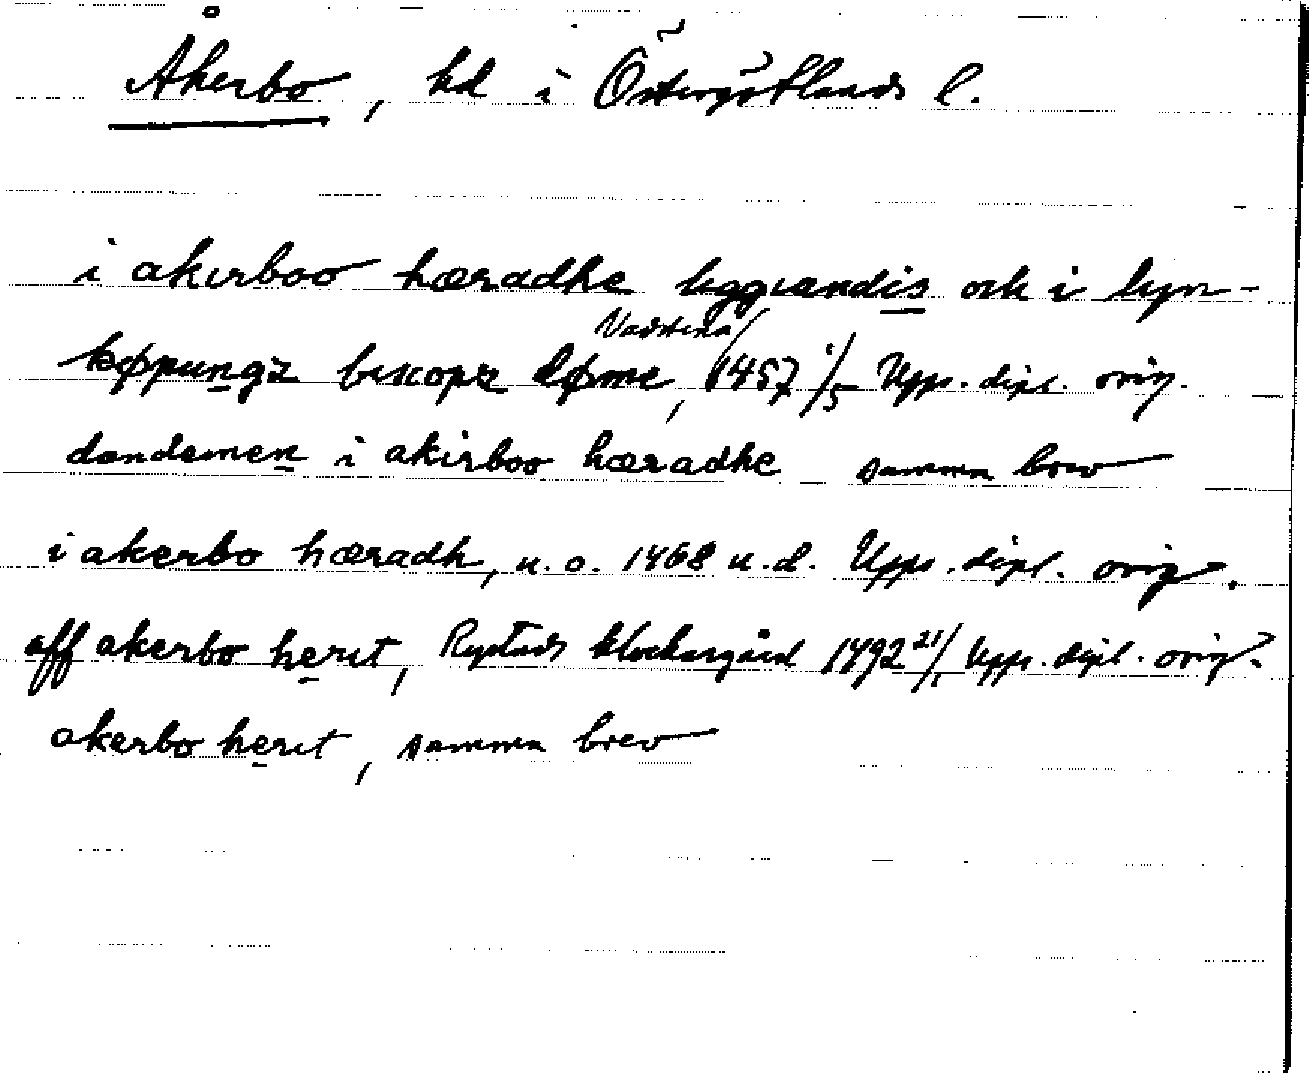 Åkerbo, hd i Östergötlands l.
i akirboo hæradhe liggiandis ok i lyn-
køpungz biscops døme, Vadstena 1457 1/5 Upps. dipl. orig.
dandemen i akirboo hæradhe samma brev
i akerbo hæradh, u. o. 1468 u. d. Upps. dipl. orig.
aff akerbo herit, Rystads klockaregård 1492 21/1 Upps. dipl. orig.
akerbo herit, samma brev